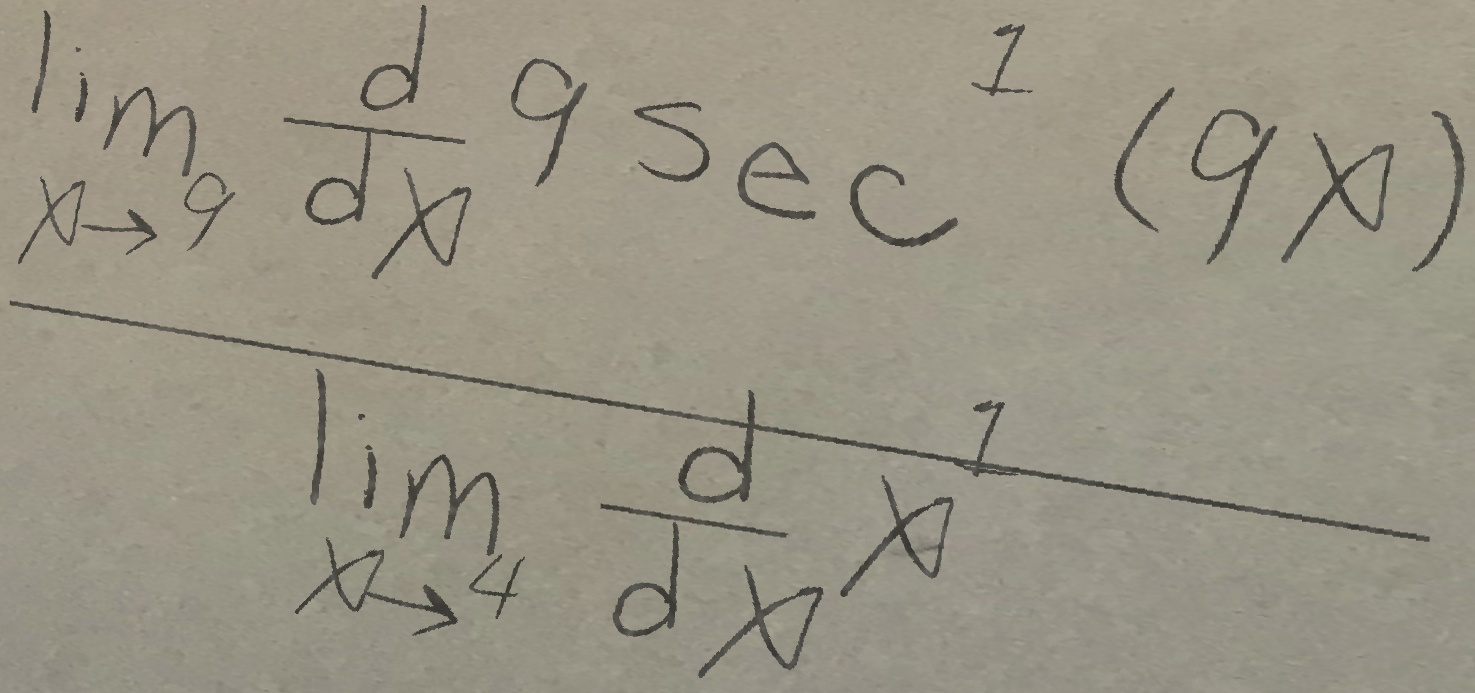 lim x→9 d/dx 9 sec^1 (9x)
lim x→4 d/dx x^1